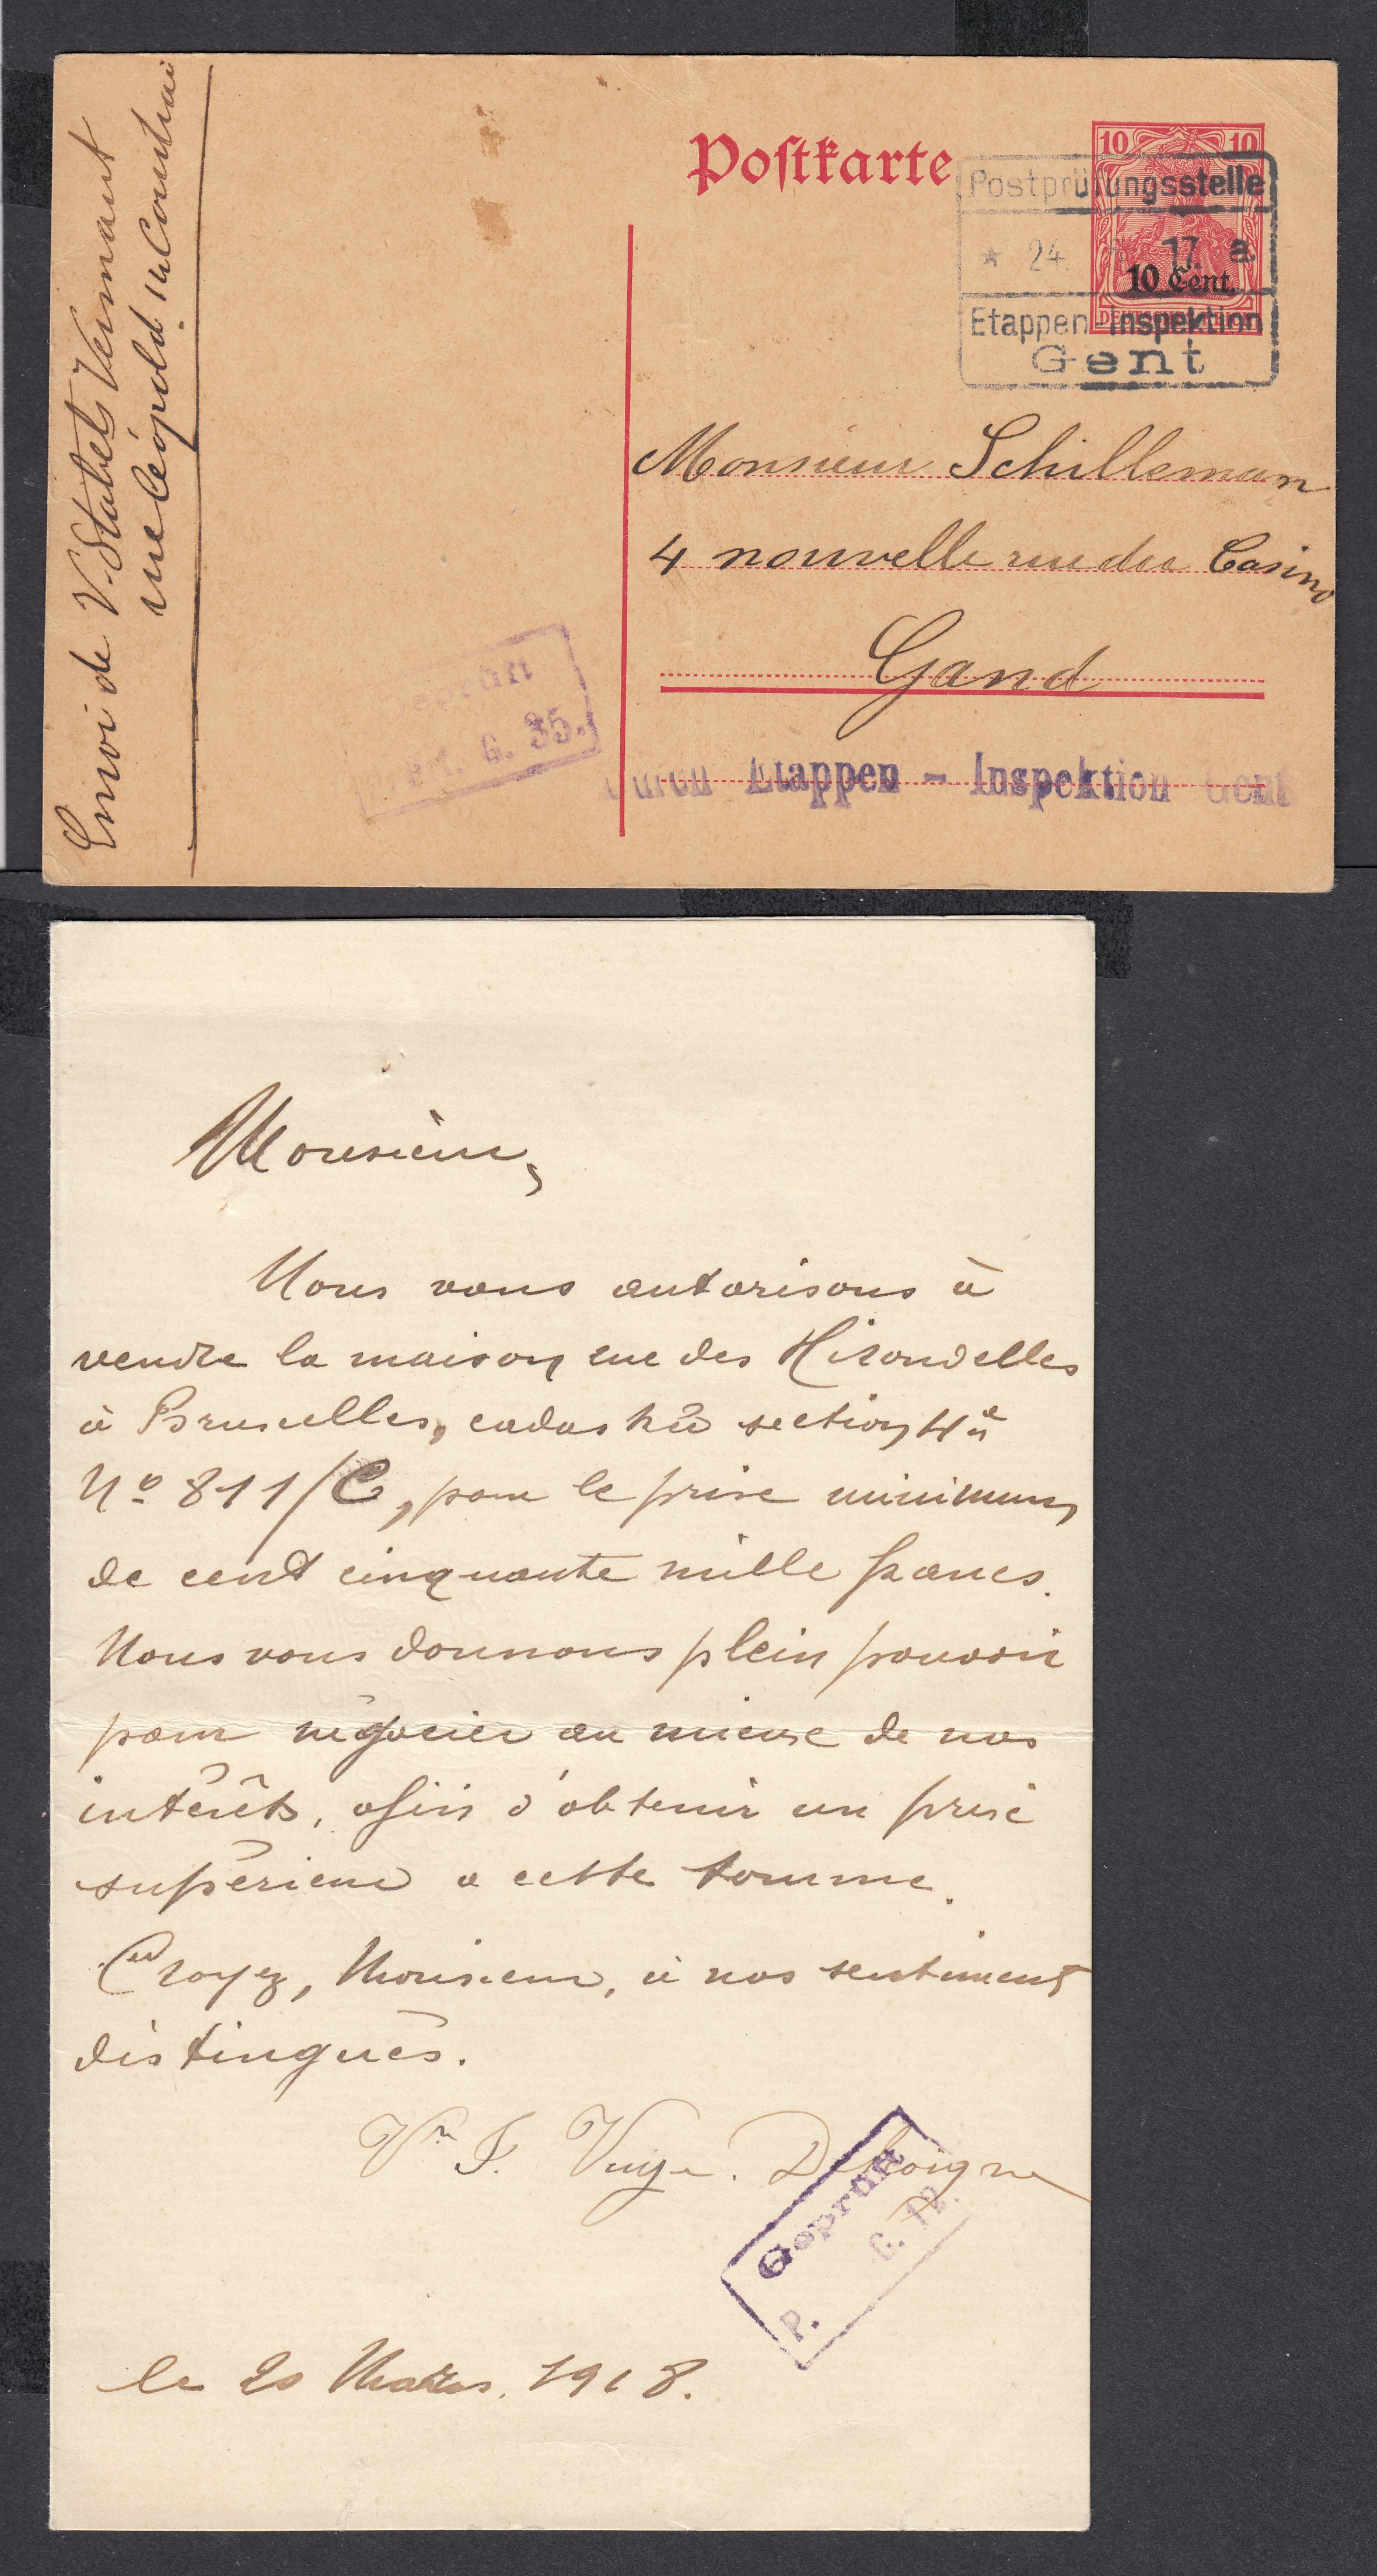 Envoi de V. Stabels Vermaut
rue Léopold 14 Courtrai
Postkarte
10 10
10 Cent.
Postprüfungsstelle
* 24. 17. a
Etappen-Inspektion
Gent
Monsieur Schilleman
4 nouvelle rue du Casino
Gand
G. 35.
durch Etappen - Inspektion Gent
Monsieur,
Nous vous autorisons à
vendre la maison rue des Hirondelles
à Bruxelles, cadastrée section 4e
No 811/C, pour le prix minimum
de cent cinquante mille francs.
Nous vous donnons plein pouvoir
pour négocier au mieux de nos
intérêts, afin d'obtenir un prix
supérieur a cette somme.
Croyez, Monsieur, à nos sentiment
distingués.
Ve J. Vuye.
Geprüft
P. G. 12.
le 20 Mars. 1918.